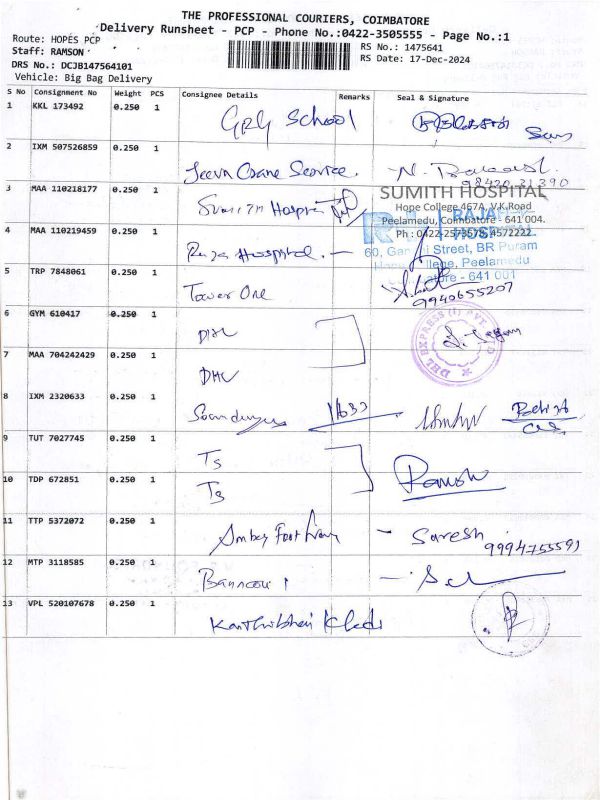 THE PROFESSIONAL COURIERS, COIMBATORE
Delivery Runsheet - PCP - Phone No.:0422-3505555 - Page No.:1
Route: HOPES PCP
Staff: RAMSON
RS No.: 1475641
DRS No.: DCJB147564101
RS Date: 17-Dec-2024
Vehicle: Big Bag Delivery
S No Consignment No Weight PCS Consignee Details Remarks Seal & Signature
1 KKL 173492 0.250 1 GRG School
2 IXM 507526859 0.250 1 Jeeva Crane Service.
3 MAA 110218177 0.250 1
SUMITH HOSPITAL
Hope College 467A, V.K.Road
Peelamedu, Coimbatore - 641 004.
Ph : 0422-2573578, 4572222
4 MAA 110219459 0.250 1 Raja Hospital. -
RAJA
HOSPITAL
Street, BR Puram
Peelamedu
- 641 001
5 TRP 7848061 0.250 1 Tower One
9940655207
6 GYM 610417 0.250 1 DHL
DHL EXPRESS (I) PVT LTD
7 MAA 704242429 0.250 1 DHL
8 IXM 2320633 0.250 1
9 TUT 7027745 0.250 1 TS
10 TDP 672851 0.250 1 TS
11 TTP 5372072 0.250 1 - Suresh
12 MTP 3118585 0.250 1
13 VPL 520107678 0.250 1 Kanthibhai